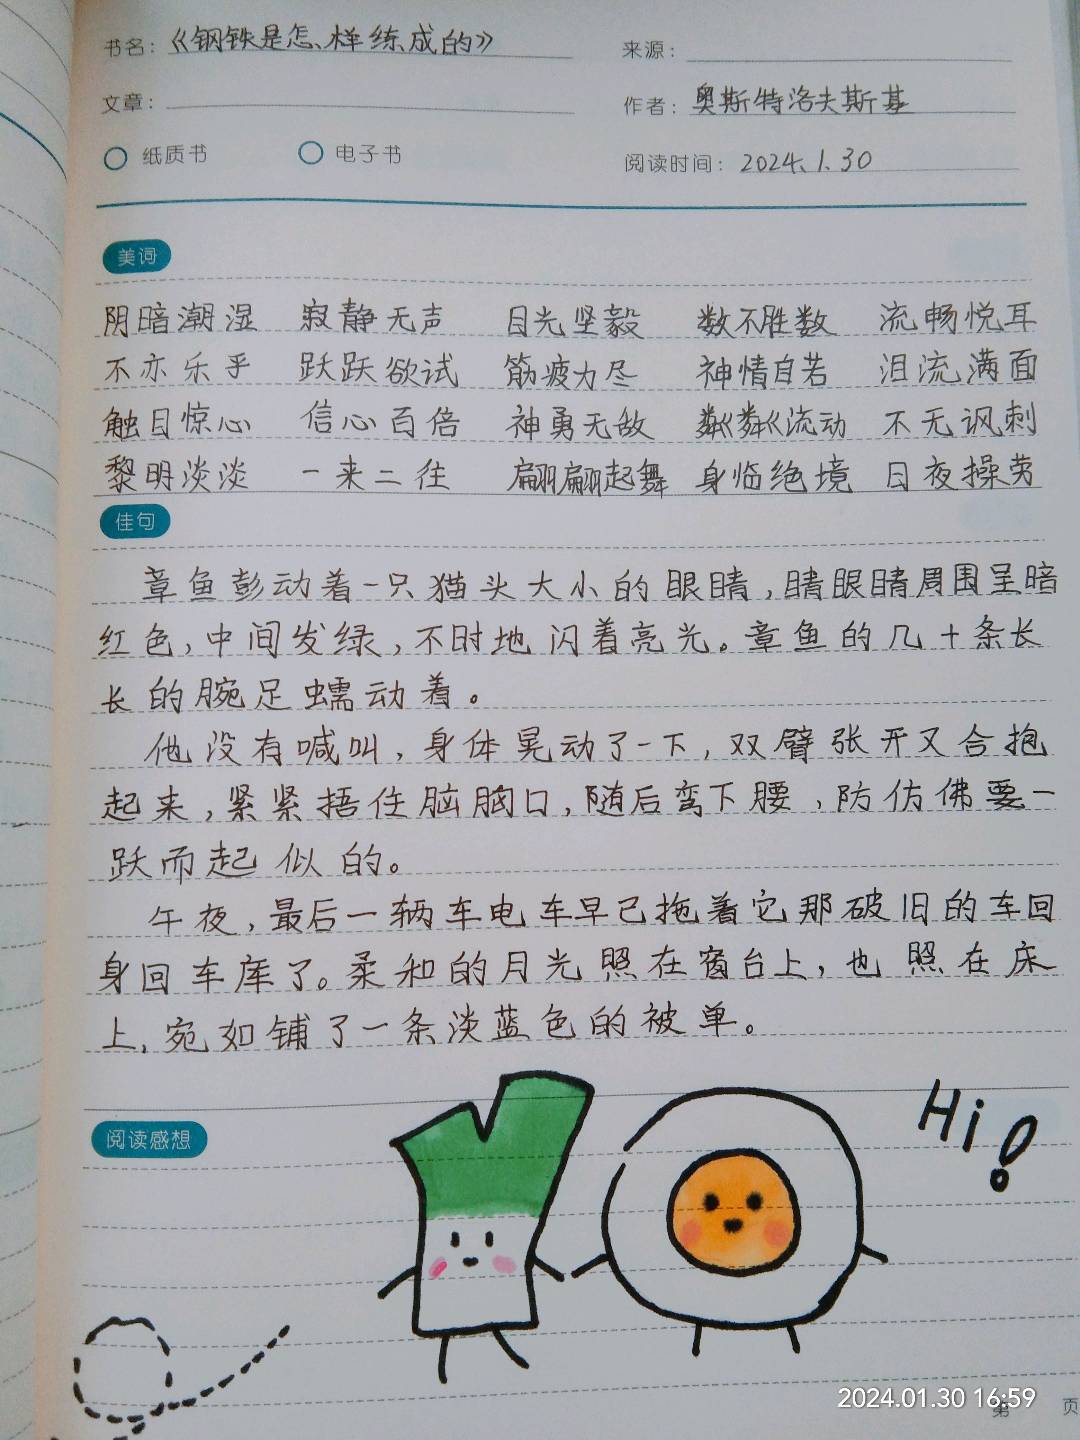 书名：《钢铁是怎样练成的》
来源：
文章：
作者：奥斯特洛夫斯基
纸质书 电子书
阅读时间：2024.1.30
美词
阴暗潮湿 寂静无声 目光坚毅 数不胜数 流畅悦耳
不亦乐乎 跃跃欲试 筋疲力尽 神情自若 泪流满面
触目惊心 信心百倍 神勇无敌 粼粼流动 不无讽刺
黎明淡淡 一来二往 翩翩起舞 身临绝境 日夜操劳
佳句
章鱼彭动着一只猫头大小的眼睛，睛眼睛周围呈暗
红色，中间发绿，不时地闪着亮光。章鱼的几十条长
长的腕足蠕动着。
他没有喊叫，身体晃动了一下，双臂张开又合抱
起来，紧紧捂住脑胸口，随后弯下腰，防仿佛要一
跃而起似的。
午夜，最后一辆车电车早已拖着它那破旧的车回
身回车库了。柔和的月光照在窗台上，也照在床
上，宛如铺了一条淡蓝色的被单。
阅读感想
Hi!
2024.01.30 16:59
第 页